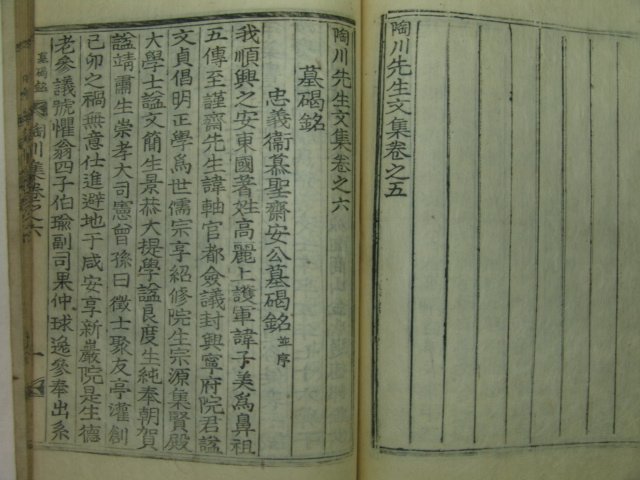 陶川先生文集卷之五
陶川先生文集卷之六
墓碣銘
忠義衛慕聖齋安公墓碣銘 並序
我順興之安東國著姓高麗上護軍諱子美爲鼻祖
五傳至謹齋先生諱軸官都僉議封興寧府院君謚
文貞倡明正學爲世儒宗享紹修院生宗源集賢殿
大學士謚文簡生景恭大提學謚良度生純奉朝賀
謚靖肅生崇孝大司憲曾孫曰徵士聚友亭灌創
己卯之禍無意仕進避地于咸安享新巖院是生德
老參議號懼翁四子伯瑜副司果仲球逸參奉出系
墓碣銘
陶川集卷之六
一